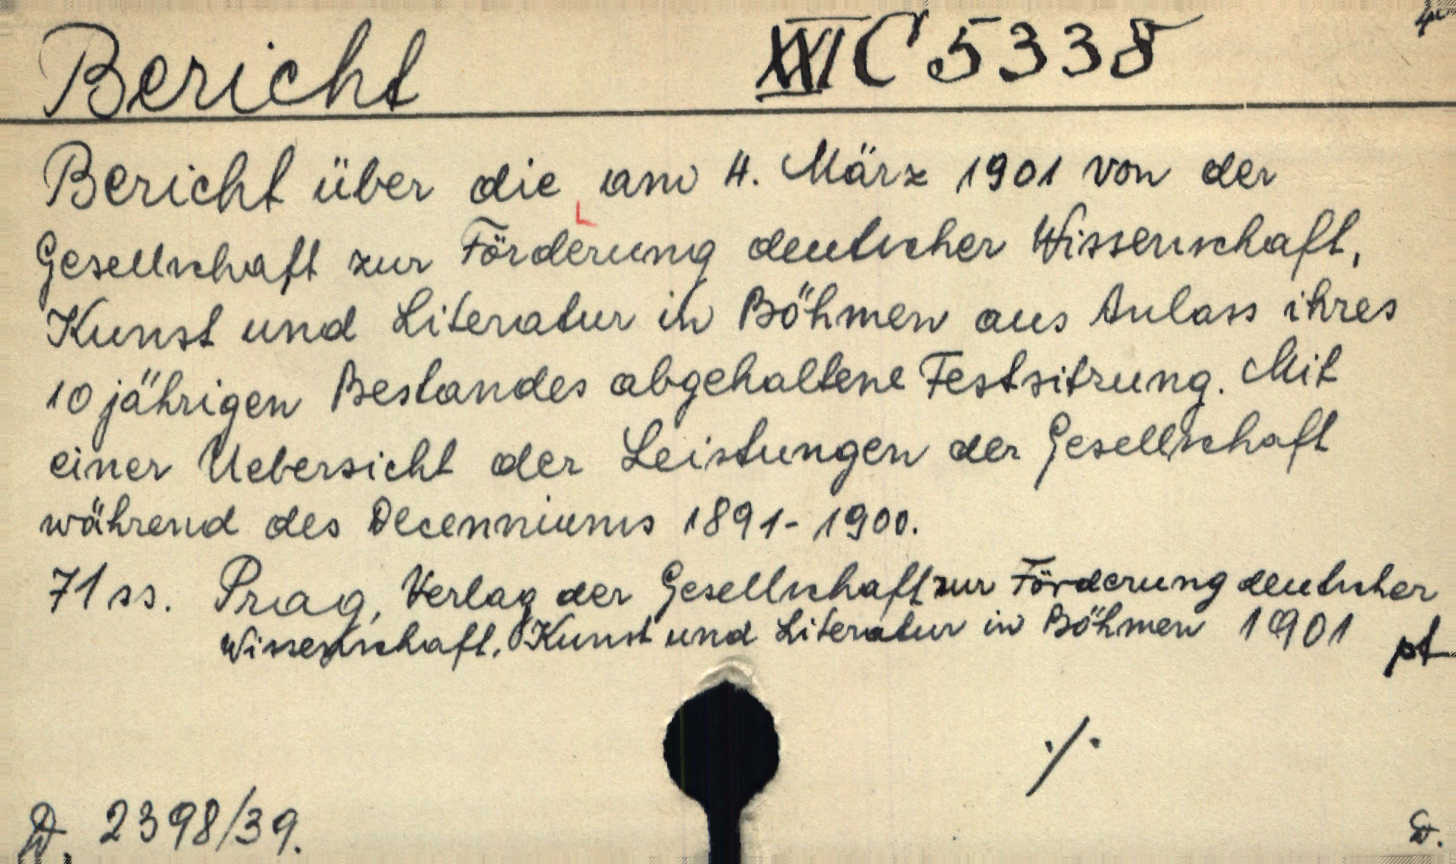 Bericht XXI C 5338
Bericht über die am 4. März 1901 von der
Gesellschaft zur Förderung deutscher Wissenschaft,
Kunst und Literatur in Böhmen aus Anlass ihres
10 jährigen Bestandes abgehaltene Festsitzung. Mit
einer Uebersicht der Leistungen der Gesellschaft
während des Decenniums 1891-1900.
71 ss. Prag, Verlag der Gesellschaft zur Förderung deutscher
Wissenschaft, Kunst und Literatur in Böhmen 1901 pt
./.
D. 2398/39.